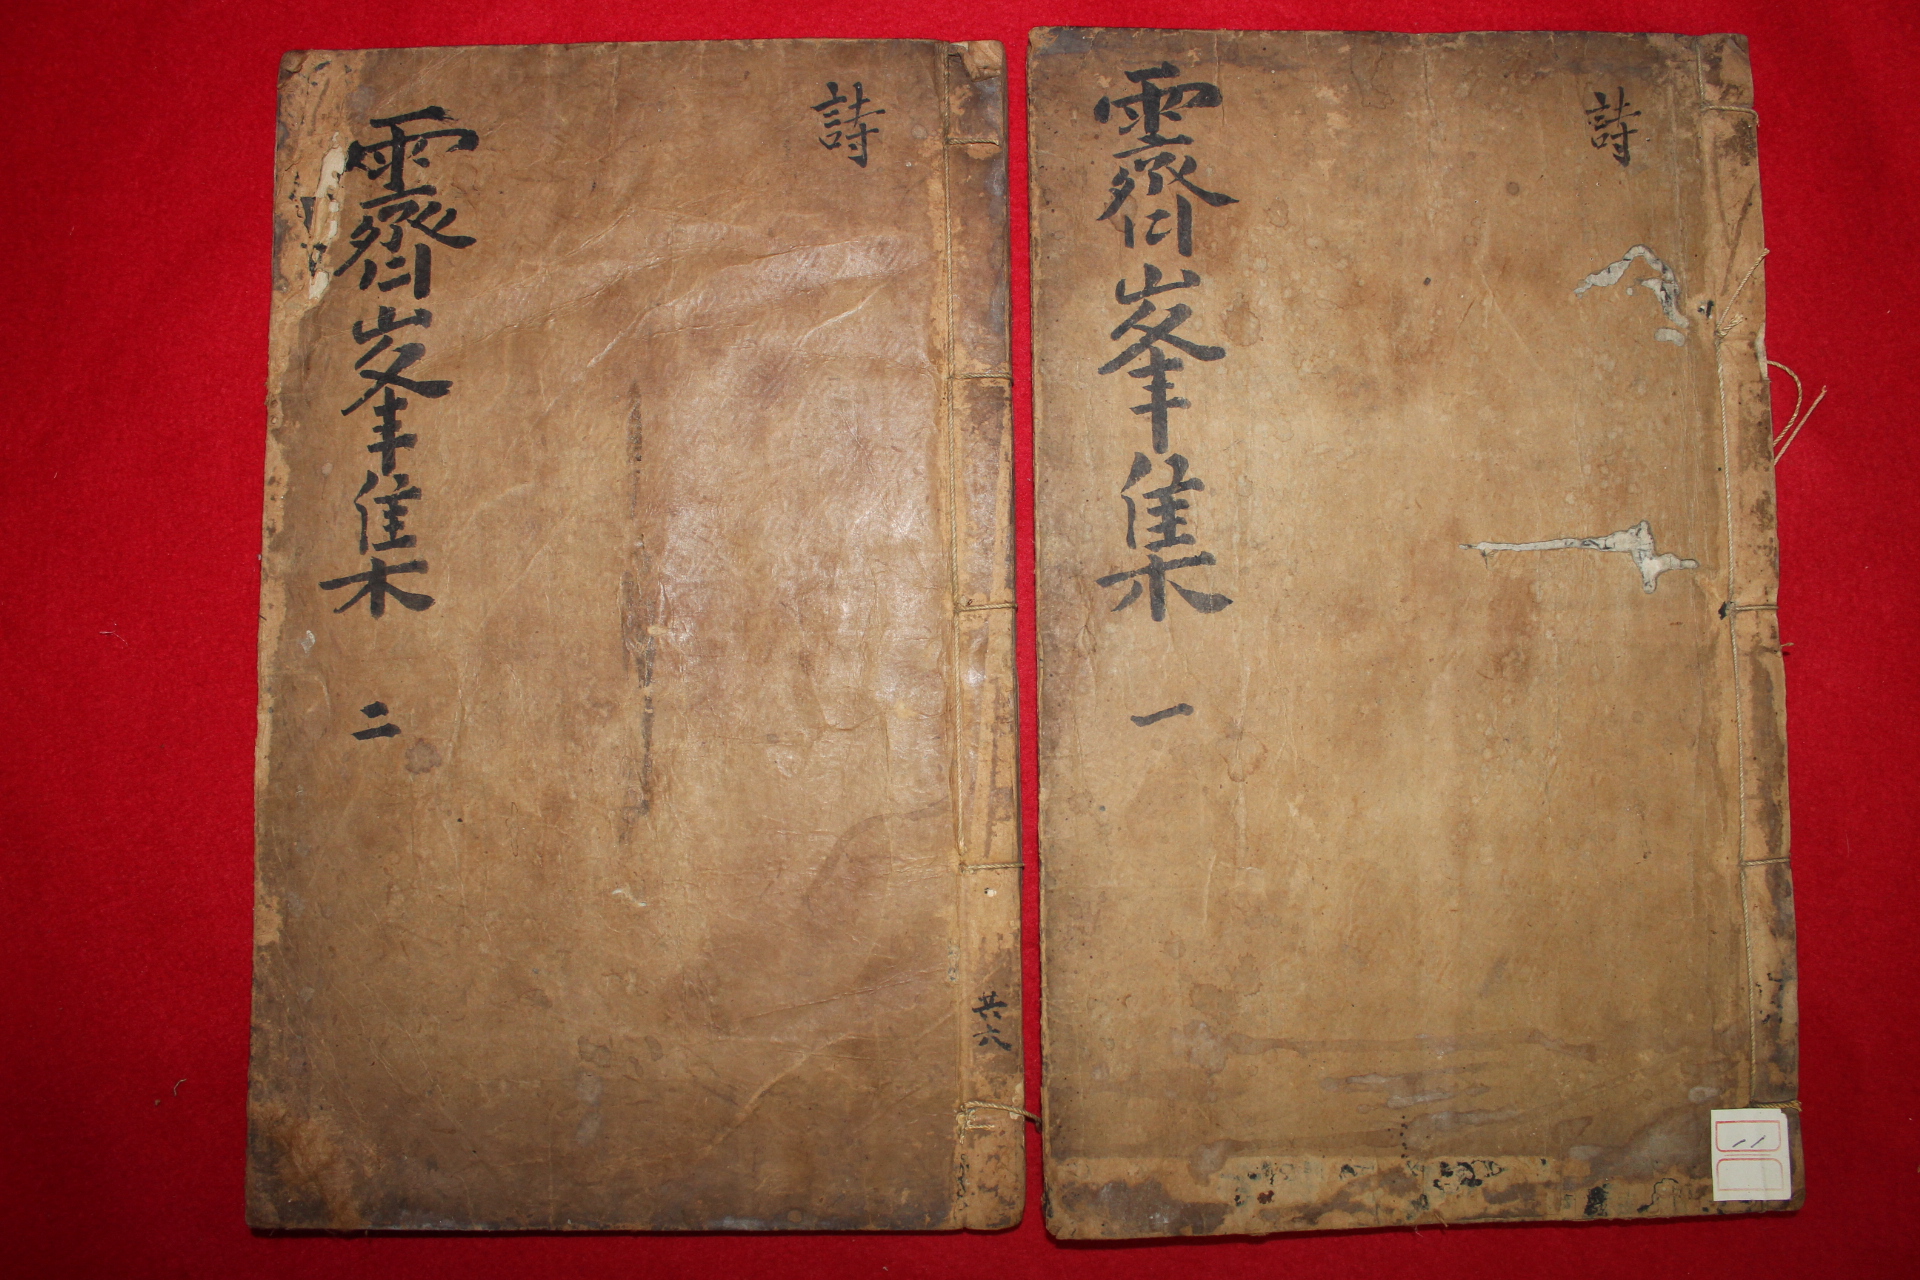 詩
霽峯集 一
11
共六
詩
霽峯集 二